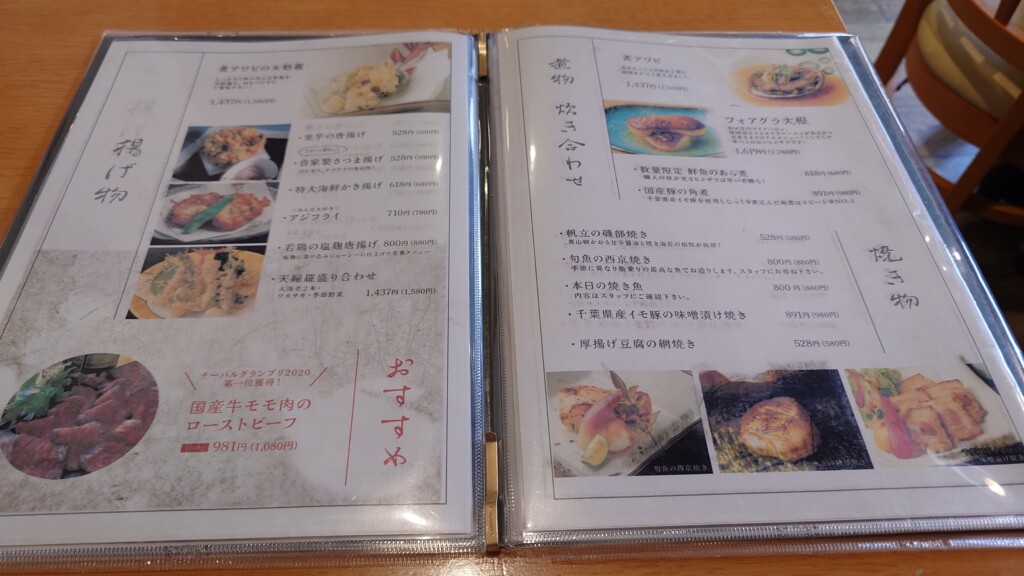 揚げ物
煮アワビの天麩羅
1,437円(1,580円)
・里芋の唐揚げ 528円(580円)
・自家製さつま揚げ 528円(580円)
・特大海鮮かき揚げ 618円(680円)
・アジフライ 710円(780円)
・若鶏の塩麹唐揚げ 800円(880円)
塩麹に漬け込みジューシーに仕上げた定番メニュー
・天婦羅盛り合わせ
大海老2本・
ワカサギ・季節野菜 1,437円(1,580円)
おすすめ
チーバルグランプリ2020
第一位獲得！
国産牛モモ肉の
ローストビーフ
981円(1,080円)
煮物 炊き合わせ
煮アワビ
1,437円(1,580円)
フォアグラ大根
1,619円(1,780円)
・数量限定 鮮魚のあら煮 618円(680円)
・国産豚の角煮 891円(980円)
焼き物
・帆立の磯部焼き 528円(580円)
・旬魚の西京焼き 800円(880円)
季節に異なり脂乗りの最高な魚でお造りします。スタッフにお尋ね下さい。
・本日の焼き魚 800円(880円)
内容はスタッフにご確認下さい。
・千葉県産イモ豚の味噌漬け焼き 891円(980円)
・厚揚げ豆腐の網焼き 528円(580円)
旬魚の西京焼き